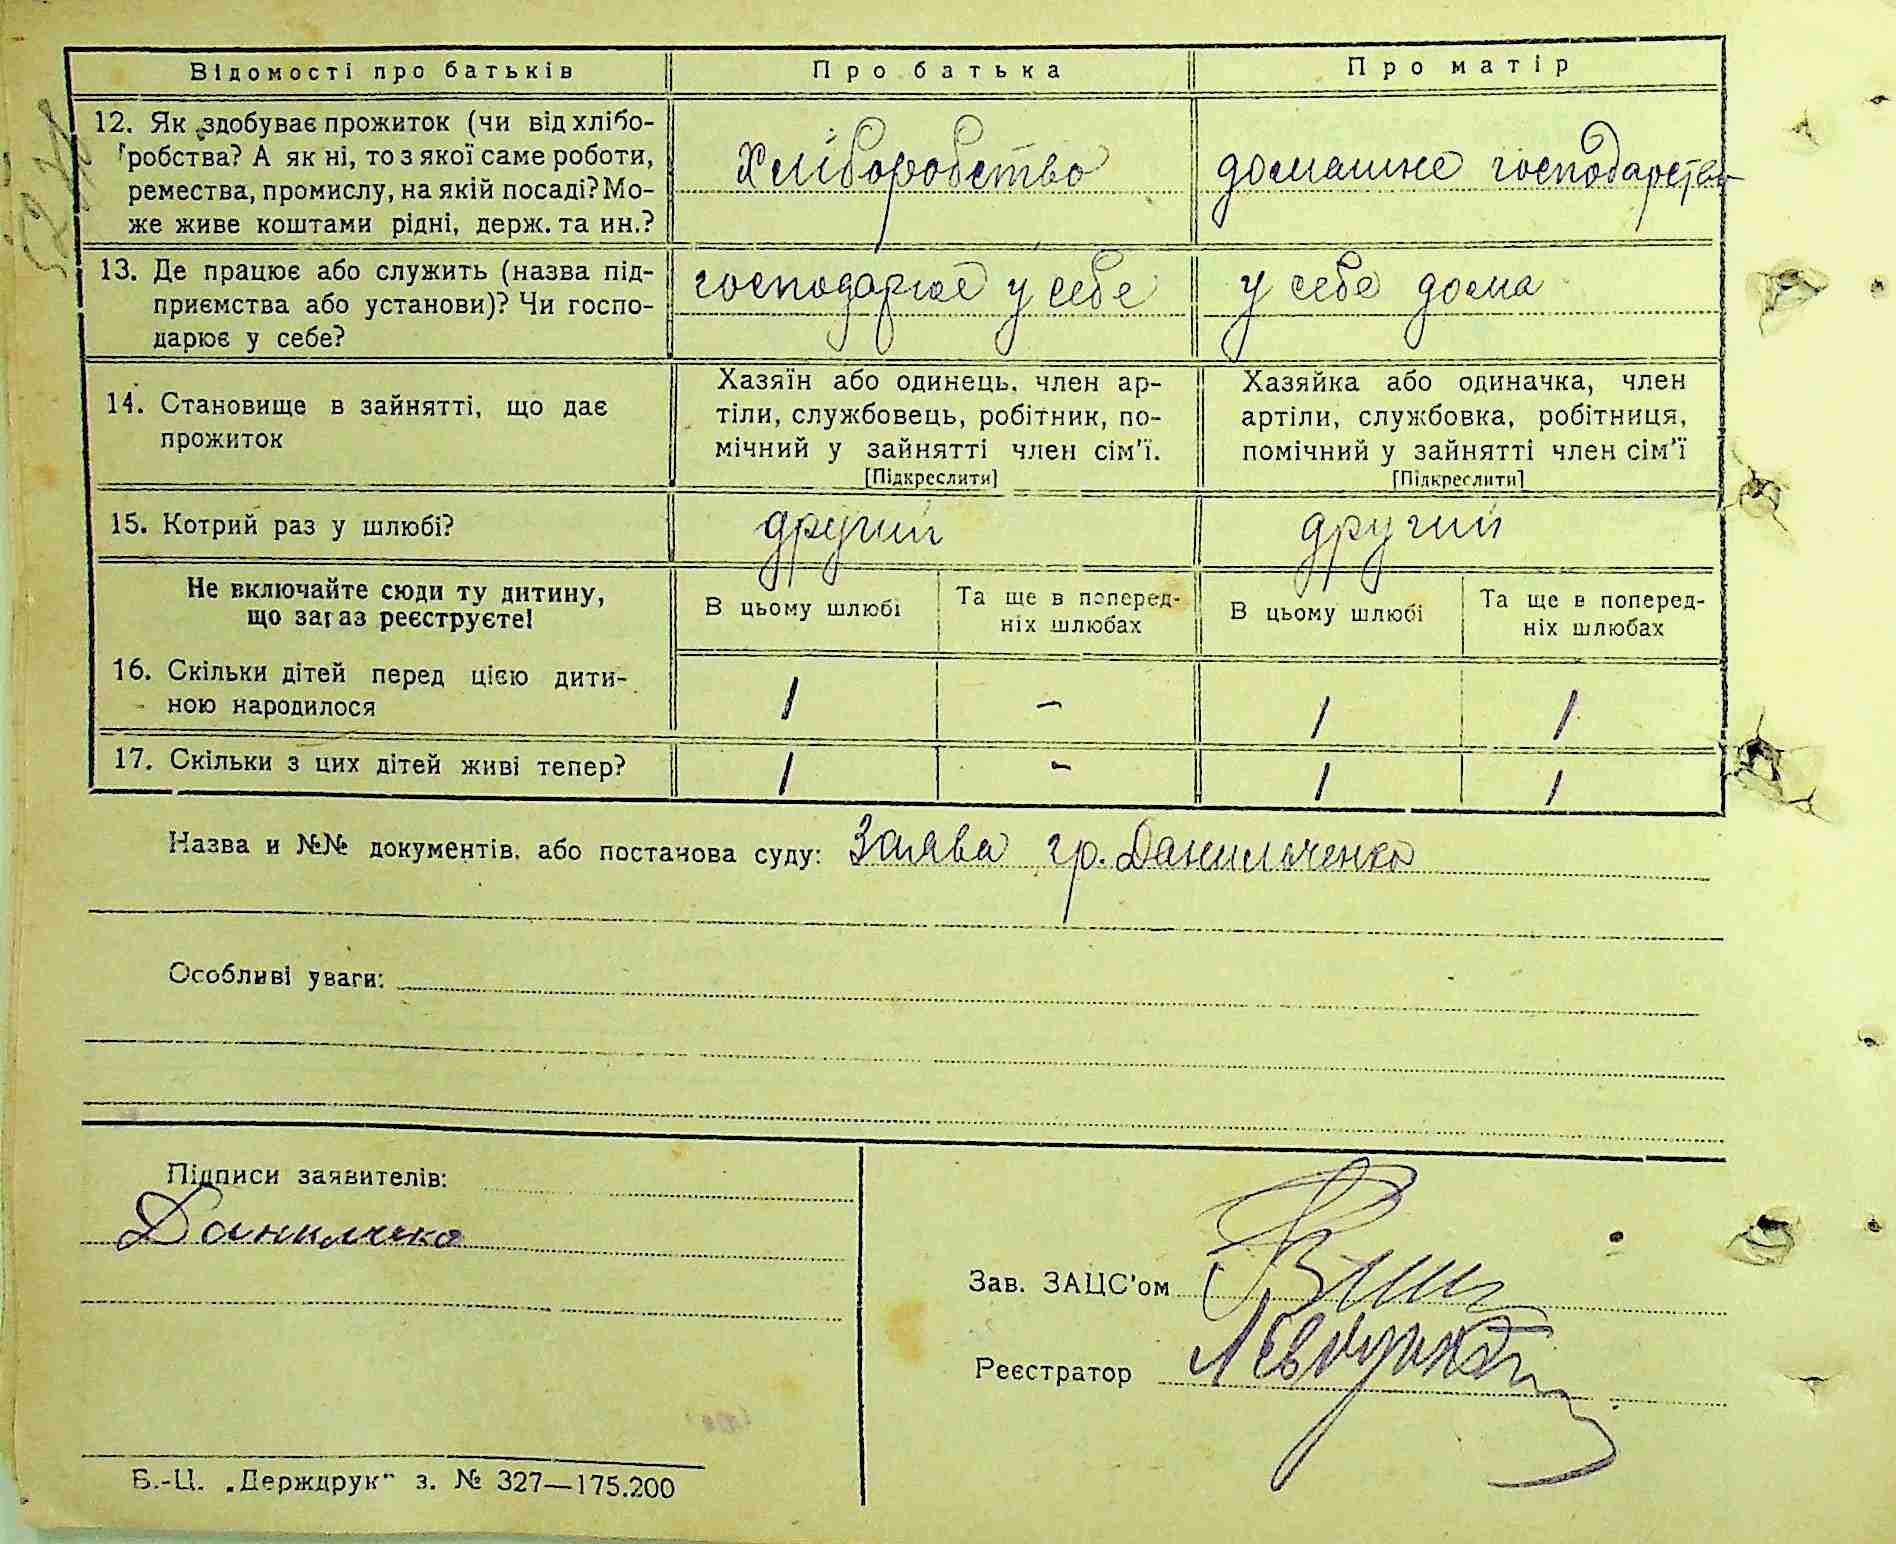 Відомості про батьків
Про батька
Про матір
12. Як здобуває прожиток (чи від хлібо-
робства? А як ні, то з якої саме роботи,
ремества, промислу, на якій посаді? Мо-
же живе коштами рідні, держ. та ин.?
Хліборобство
домашнє господарство
13. Де працює або служить (назва під-
приємства або установи)? Чи госпо-
дарює у себе?
господарює у себе
у себе дома
14. Становище в зайнятті, що дає
прожиток
Хазяїн або одинець, член ар-
тіли, службовець, робітник, по-
мічний у зайнятті член сім'ї.
[Підкреслити]
Хазяйка або одиначка, член
артіли, службовка, робітниця,
помічний у зайнятті член сім'ї
[Підкреслити]
15. Котрий раз у шлюбі?
другий
другий
Не включайте сюди ту дитину,
що зараз реєструєте!
В цьому шлюбі
Та ще в поперед-
ніх шлюбах
В цьому шлюбі
Та ще в поперед-
ніх шлюбах
16. Скільки дітей перед цією дити-
ною народилося
1 - 1 1
17. Скільки з цих дітей живі тепер?
1 - 1 1
Назва и №№ документів, або постанова суду: Заява гр. Данильченко
Особливі уваги:
Підписи заявителів:
Зав. ЗАЦС'ом
Реєстратор
Б.-Ц. „Держдрук" з. № 327—175.200